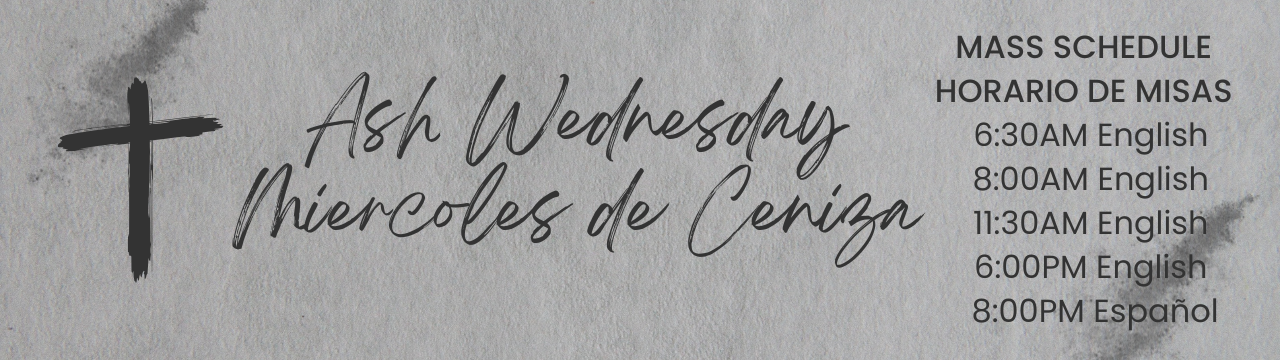 Ash Wednesday
Miercoles de Ceniza
MASS SCHEDULE
HORARIO DE MISAS
6:30AM English
8:00AM English
11:30AM English
6:00PM English
8:00PM Español